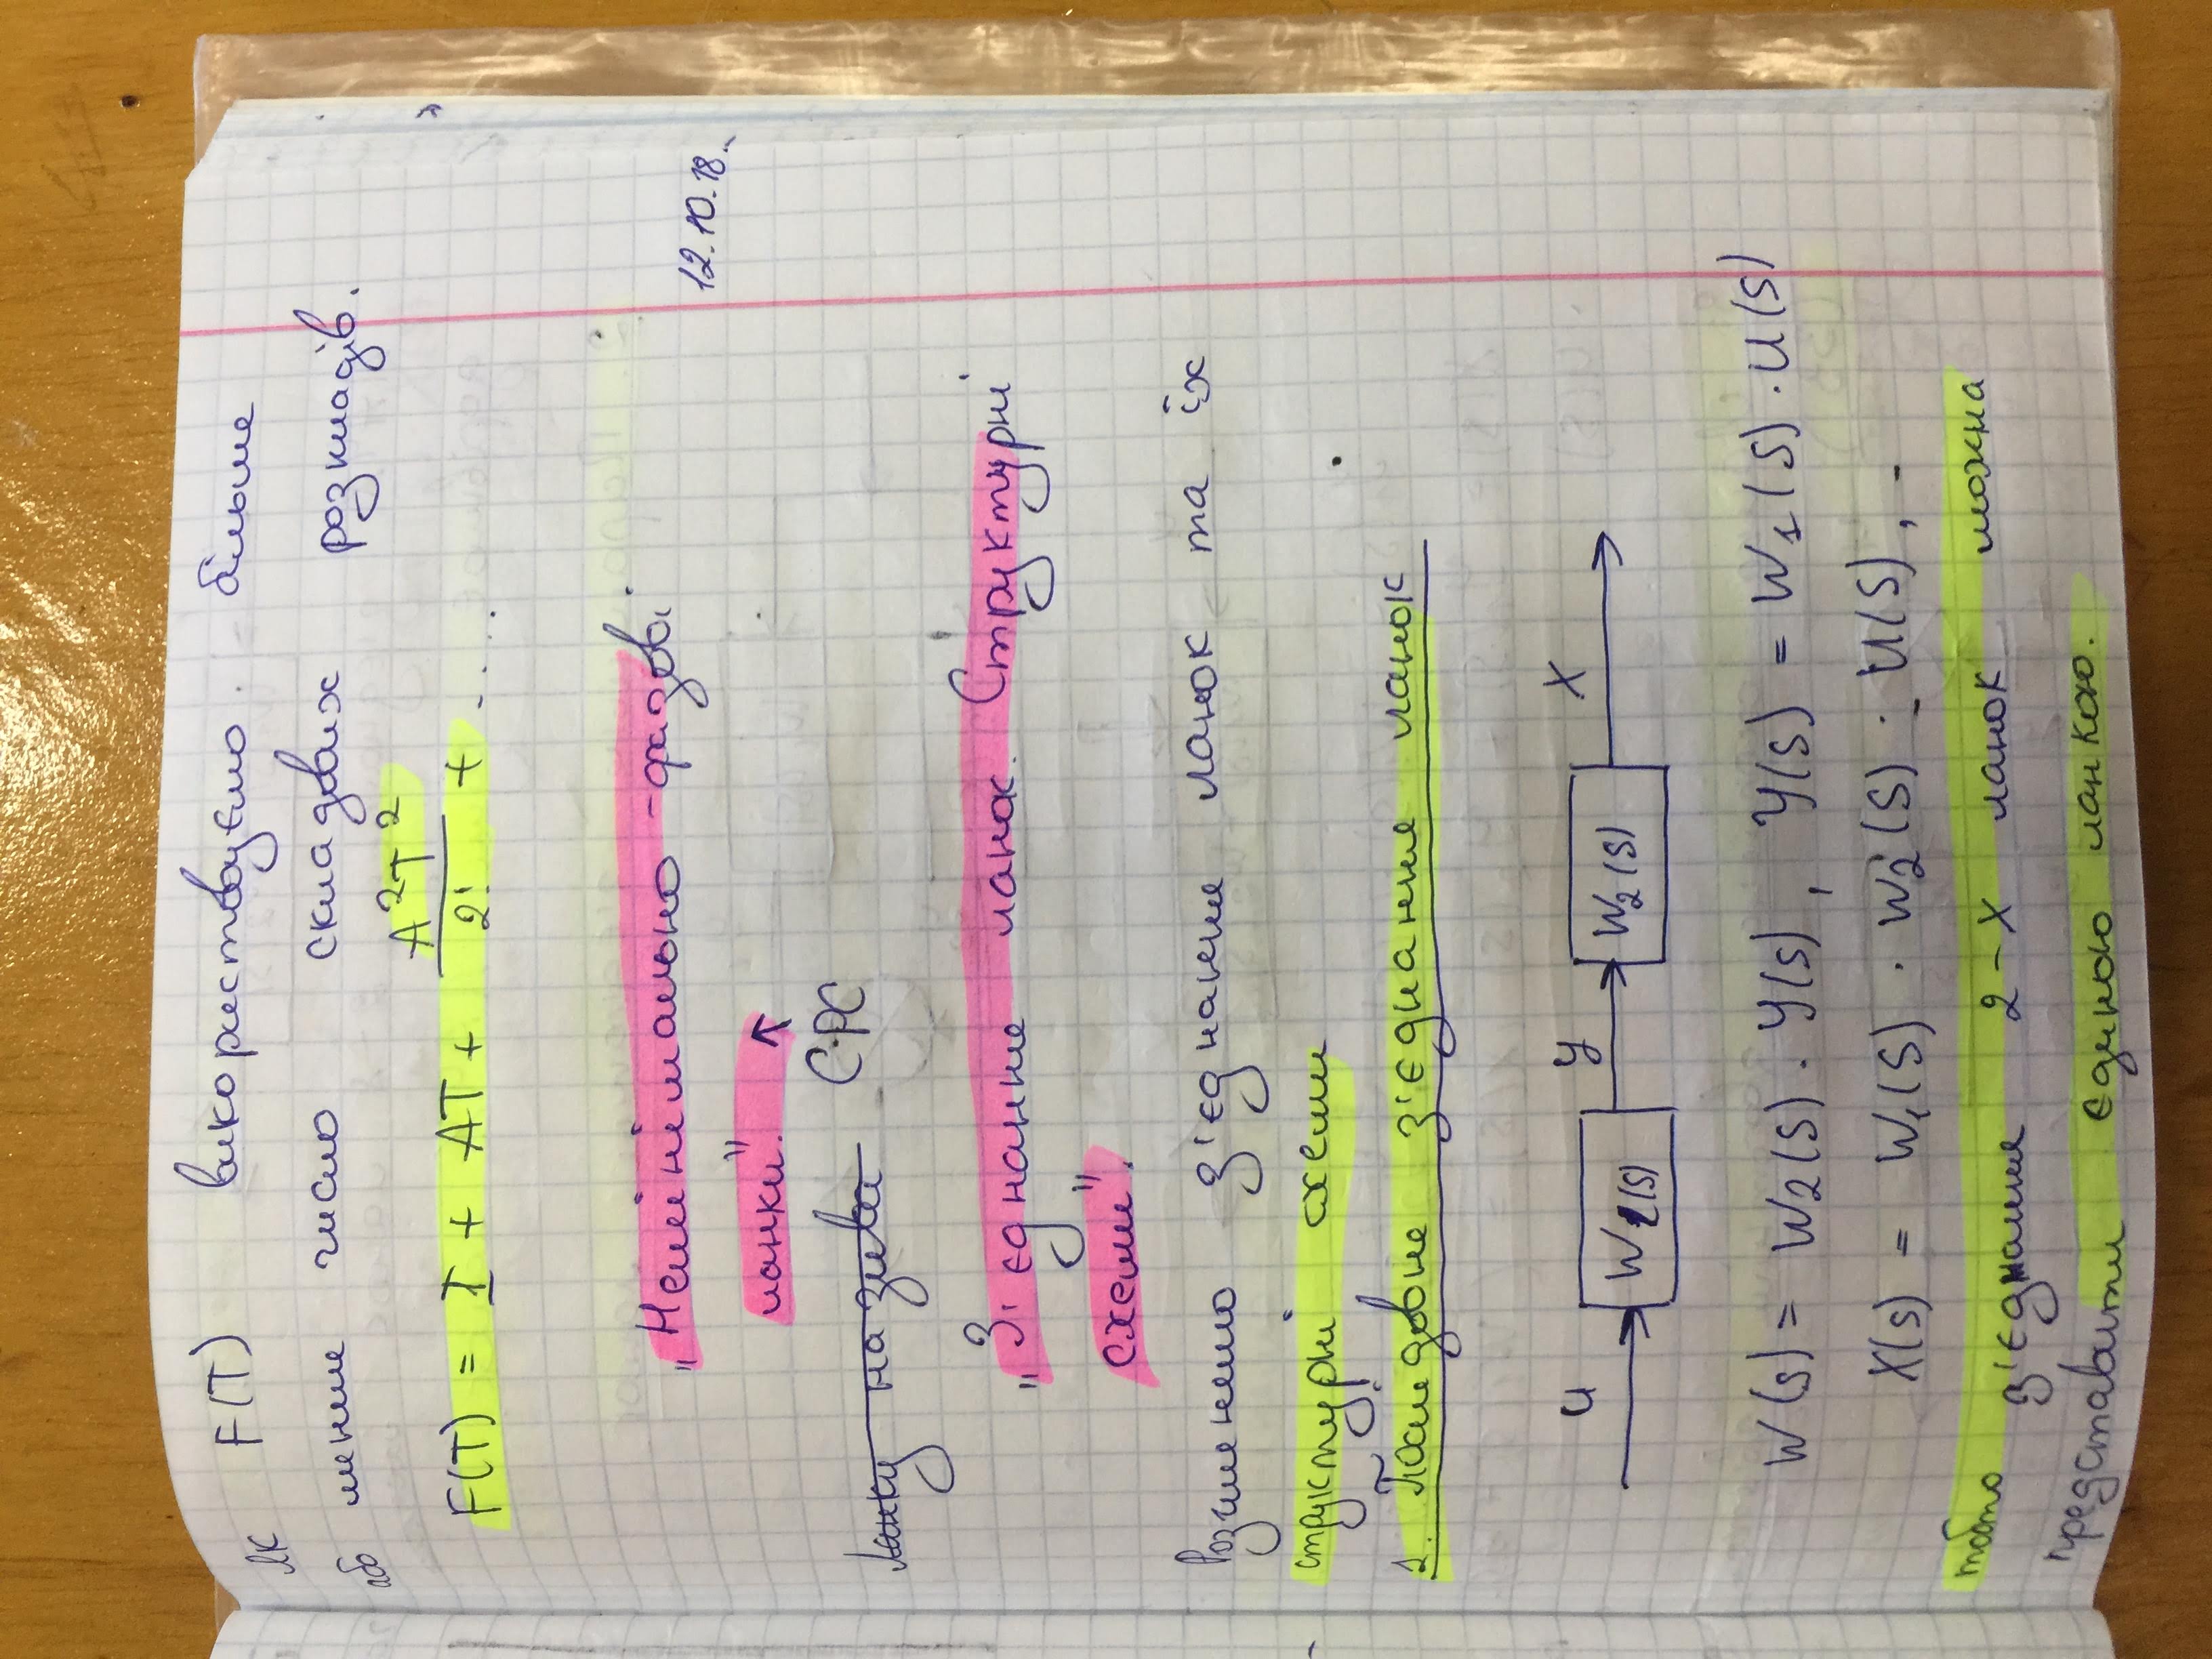 як F(T) використовуємо більше
або менше число складових розкладів.
F(T) = I + AT + A²T²/2! + ....
„Немінімально-фазові
12.10.18.
ланки". ↑
Ланку назива СРС
„З'єднання ланок. Структурні
схеми".
Розглянемо з'єднання ланок та їх
структурні схеми
1. Послідовне з'єднання ланок
u W1(s) y W2(s) X
W(s) = W2(s) · Y(s), Y(s) = W1(s) · U(s)
X(s) = W1(s) · W2(s) · U(s), -
тобто з'єднання 2-х ланок можна
представити єдиною ланкою.